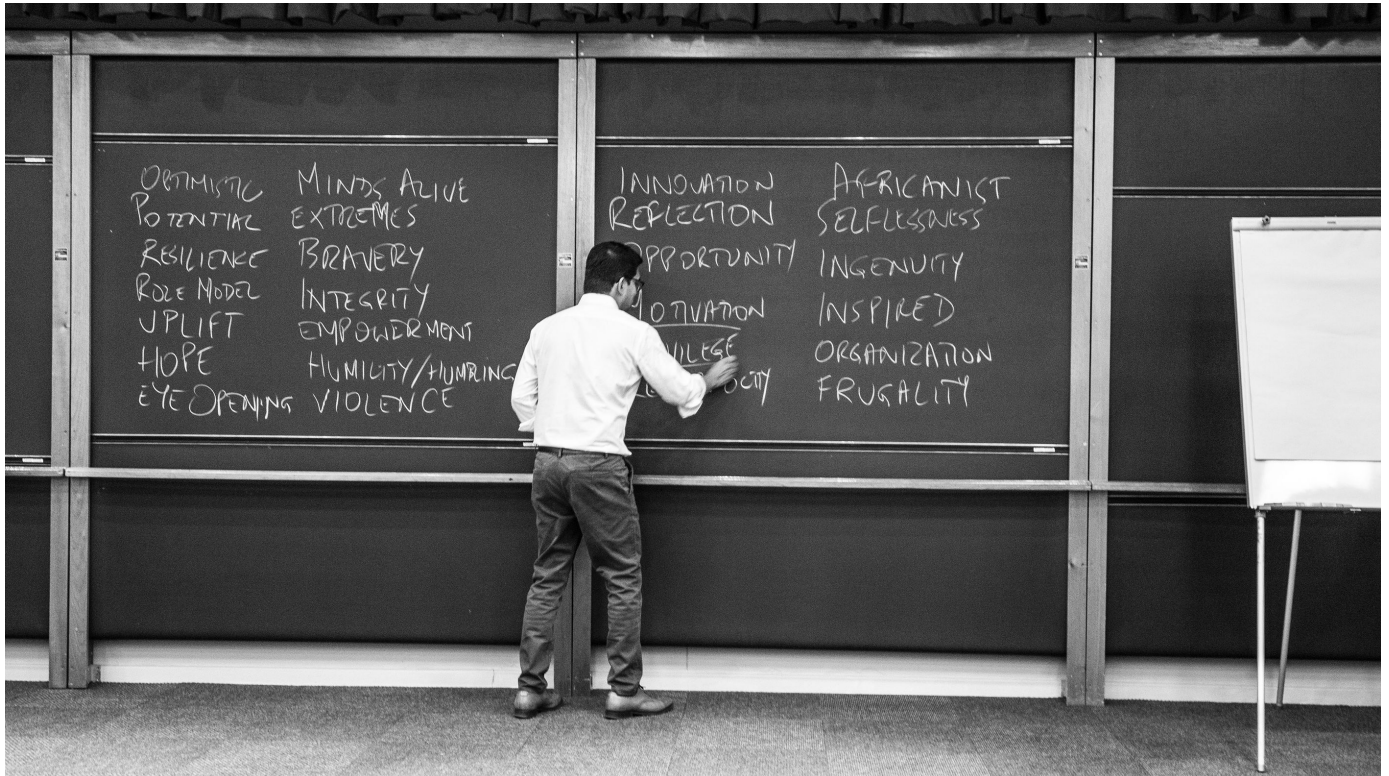 OPTIMISTIC
POTENTIAL
RESILIENCE
ROLE MODEL
UPLIFT
HOPE
EYE OPENING
MINDS ALIVE
EXTREMES
BRAVERY
INTEGRITY
EMPOWERMENT
HUMILITY/HUMBLING
VIOLENCE
INNOVATION
REFLECTION
OPPORTUNITY
MOTIVATION
AFRICANIST
SELFLESSNESS
INGENUITY
INSPIRED
ORGANIZATION
FRUGALITY